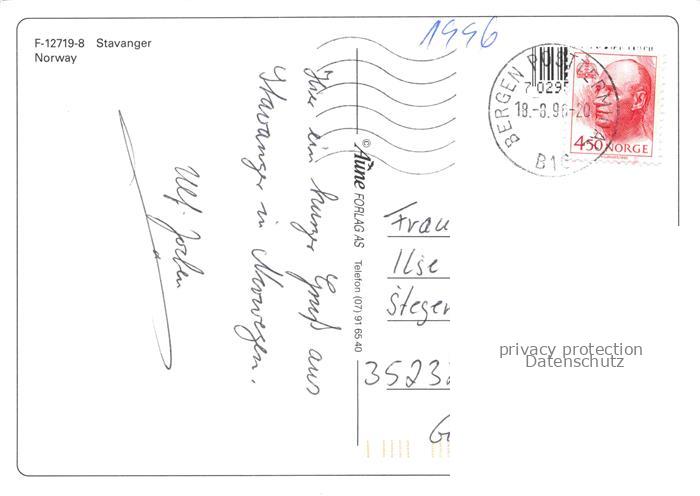 F-12719-8 Stavanger
Norway
1996
BERGEN POSTTERMINAL
18.-8.96-20
B16
7 0295
4.50 NORGE
Hier ein kurzer Gruß aus
Stavanger in Norwegen.
Ulf-Jochen
© Aune FORLAG AS Telefon (07) 91 65 40
Frau
Ilse
Steger
35232
privacy protection
Datenschutz